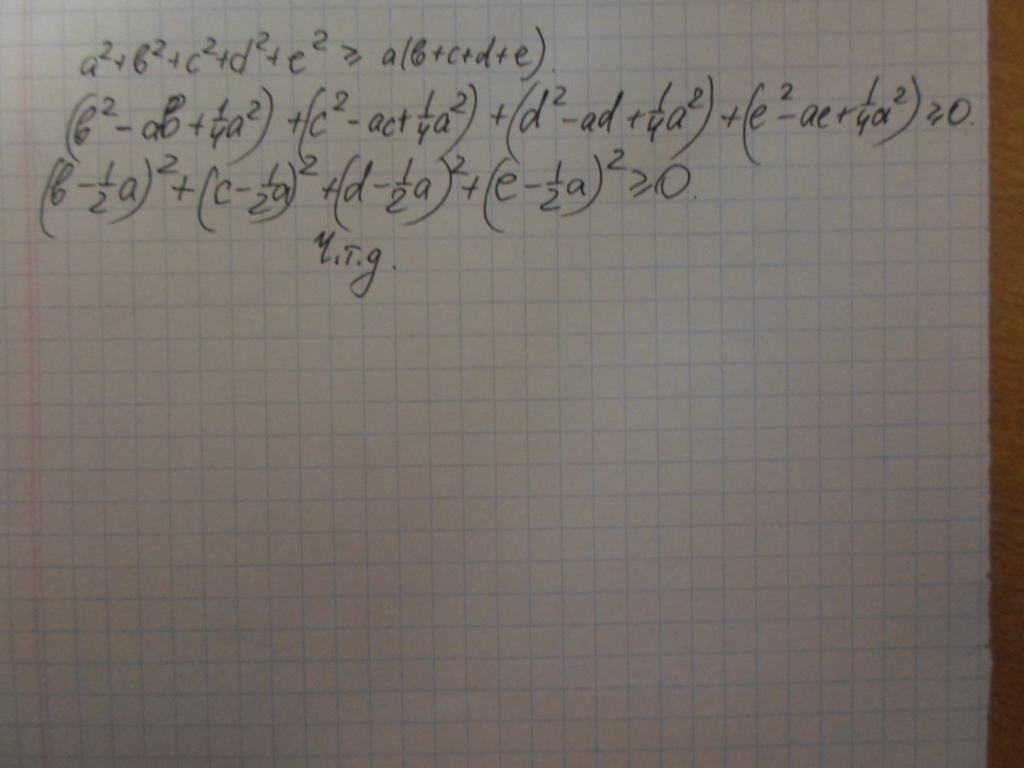 a²+в²+c²+d²+e² ⩾ a(в+c+d+e).
(в²-aв+1/4a²)+(c²-ac+1/4a²)+(d²-ad+1/4a²)+(e²-ae+1/4a²)⩾0.
(в-1/2a)²+(c-1/2a)²+(d-1/2a)²+(e-1/2a)²⩾0.
Ч.т.д.